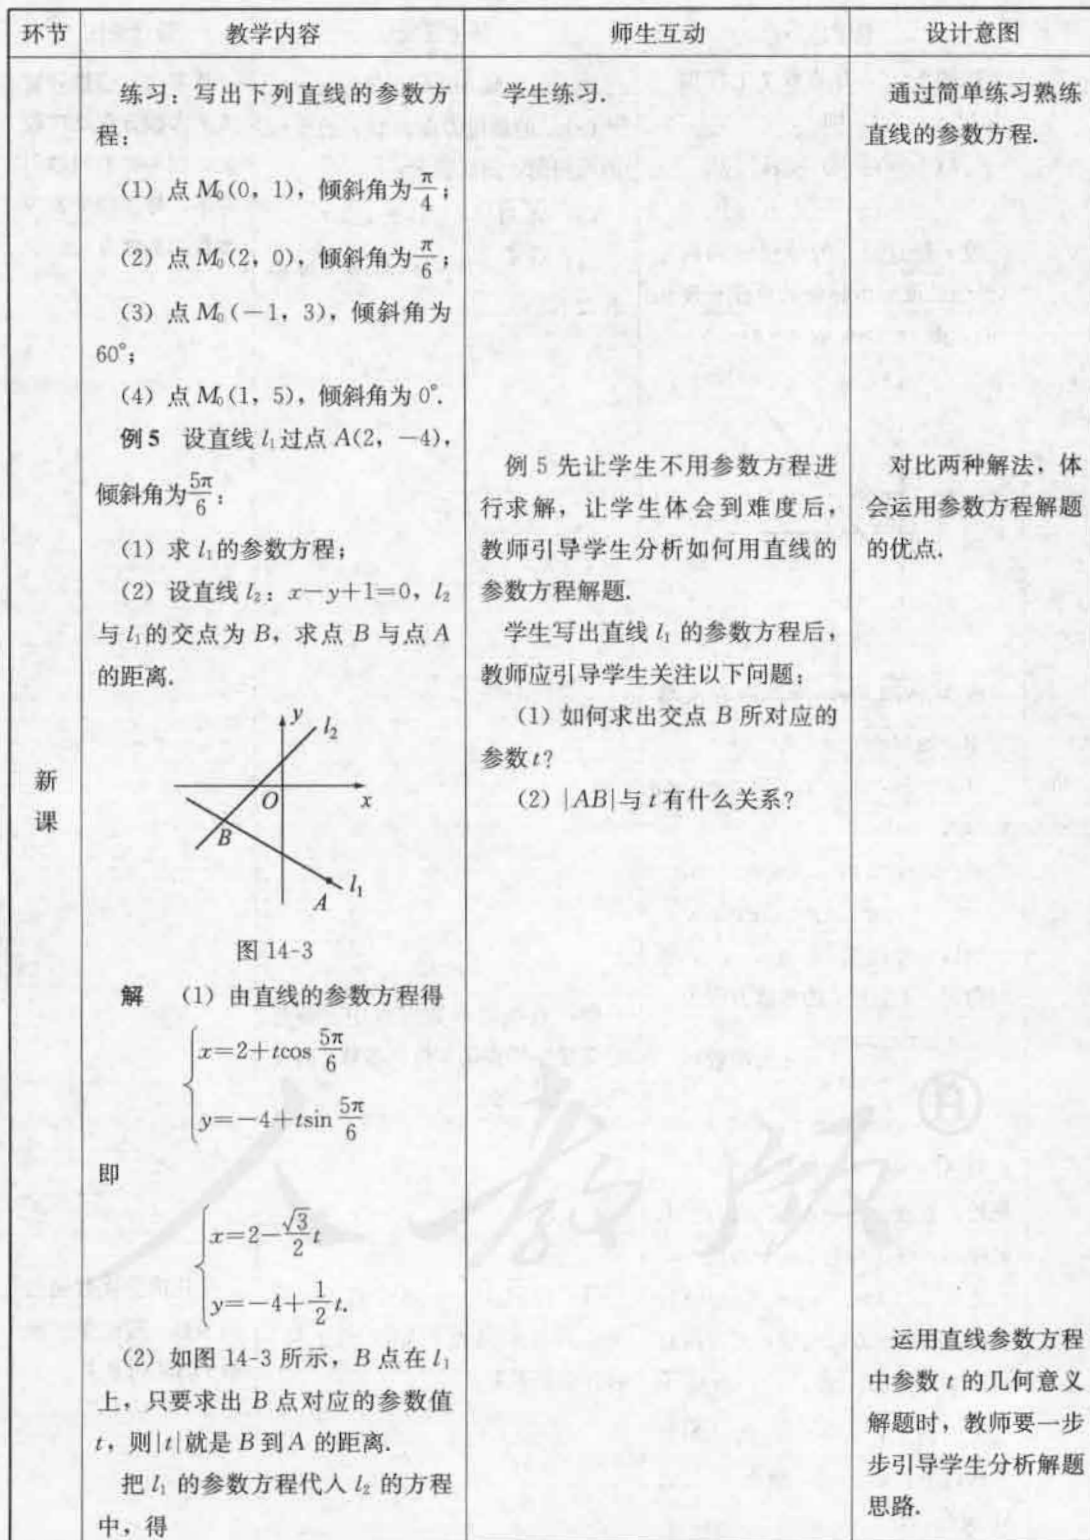 环节 教学内容 师生互动 设计意图
新
课
练习：写出下列直线的参数方
程：
（1）点 M₀(0，1)，倾斜角为π/4；
（2）点 M₀(2，0)，倾斜角为π/6；
（3）点 M₀(－1，3)，倾斜角为
60°；
（4）点 M₀(1，5)，倾斜角为 0°.
例 5 设直线 l₁过点 A(2，－4)，
倾斜角为5π/6：
（1）求 l₁的参数方程；
（2）设直线 l₂：x－y＋1＝0，l₂
与 l₁的交点为 B，求点 B 与点 A
的距离.
y
l₂
O
x
B
l₁
A
图 14-3
解 （1）由直线的参数方程得
x＝2＋tcos 5π/6
y＝－4＋tsin 5π/6
即
x＝2－√3/2 t
y＝－4＋1/2 t.
（2）如图 14-3 所示，B 点在 l₁
上，只要求出 B 点对应的参数值
t，则|t|就是 B 到 A 的距离.
把 l₁ 的参数方程代入 l₂ 的方程
中，得
学生练习.
例 5 先让学生不用参数方程进
行求解，让学生体会到难度后，
教师引导学生分析如何用直线的
参数方程解题.
学生写出直线 l₁ 的参数方程后，
教师应引导学生关注以下问题：
（1）如何求出交点 B 所对应的
参数 t？
（2）|AB|与 t 有什么关系？
通过简单练习熟练
直线的参数方程.
对比两种解法，体
会运用参数方程解题
的优点.
运用直线参数方程
中参数 t 的几何意义
解题时，教师要一步
步引导学生分析解题
思路.
人教版